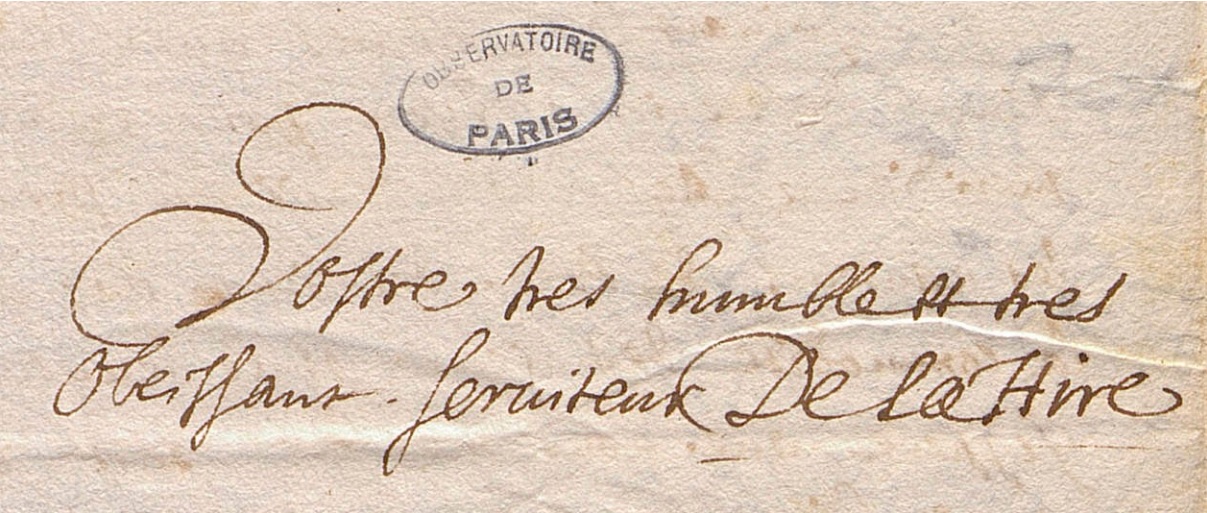 OBSERVATOIRE
DE
PARIS
Vostre tres humble et tres
obeissant serviteur De La Hire